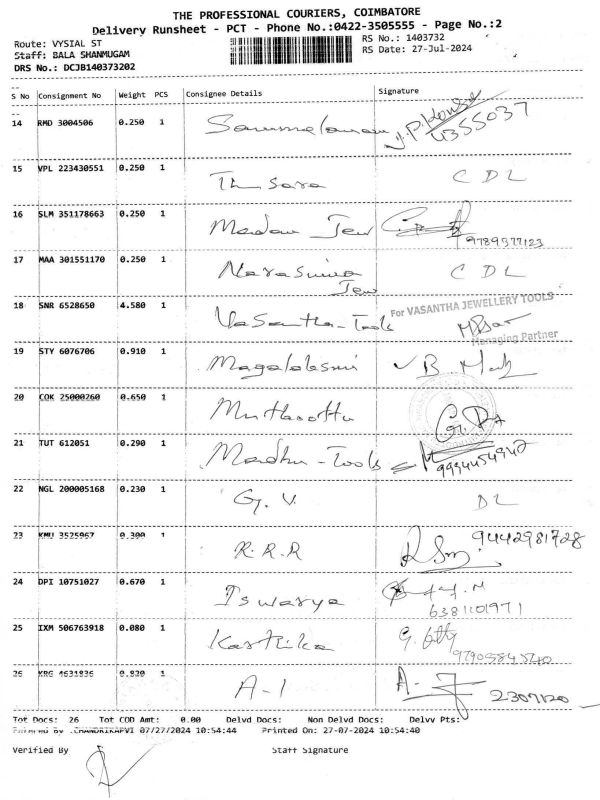 THE PROFESSIONAL COURIERS, COIMBATORE
Delivery Runsheet - PCT - Phone No.:0422-3505555 - Page No.:2
Route: VYSIAL ST RS No.: 1403732
Staff: BALA SHANMUGAM RS Date: 27-Jul-2024
DRS No.: DCJB140373202
S No Consignment No Weight PCS Consignee Details Signature
14 RMD 3004506 0.250 1 4355037
15 VPL 223430551 0.250 1 Thusara CDL
16 SLM 351178663 0.250 1 Madan Jew 9789577123
17 MAA 301551170 0.250 1 Narasima CDL
Jew
18 SNR 6528650 4.580 1 Vasantha-Tools For VASANTHA JEWELLERY TOOLS
Managing Partner
19 STY 6076706 0.910 1 Magalaksmi
20 COK 25000260 0.650 1 Muthoottu
21 TUT 612051 0.290 1 Madhu-Tools
22 NGL 200005168 0.230 1 G. V. DL
23 KMU 3525967 0.300 1 R.R.R 9442981728
24 DPI 10751027 0.670 1 Iswarya 6381101971
25 IXM 506763918 0.080 1 Karthika
26 KRG 4631836 0.820 1 A-1 2307120
Tot Docs: 26 Tot COD Amt: 0.00 Delvd Docs: Non Delvd Docs: Delvv Pts:
.CHANDRIKAPVI 07/27/2024 10:54:44 Printed On: 27-07-2024 10:54:40
Verified By Staff Signature